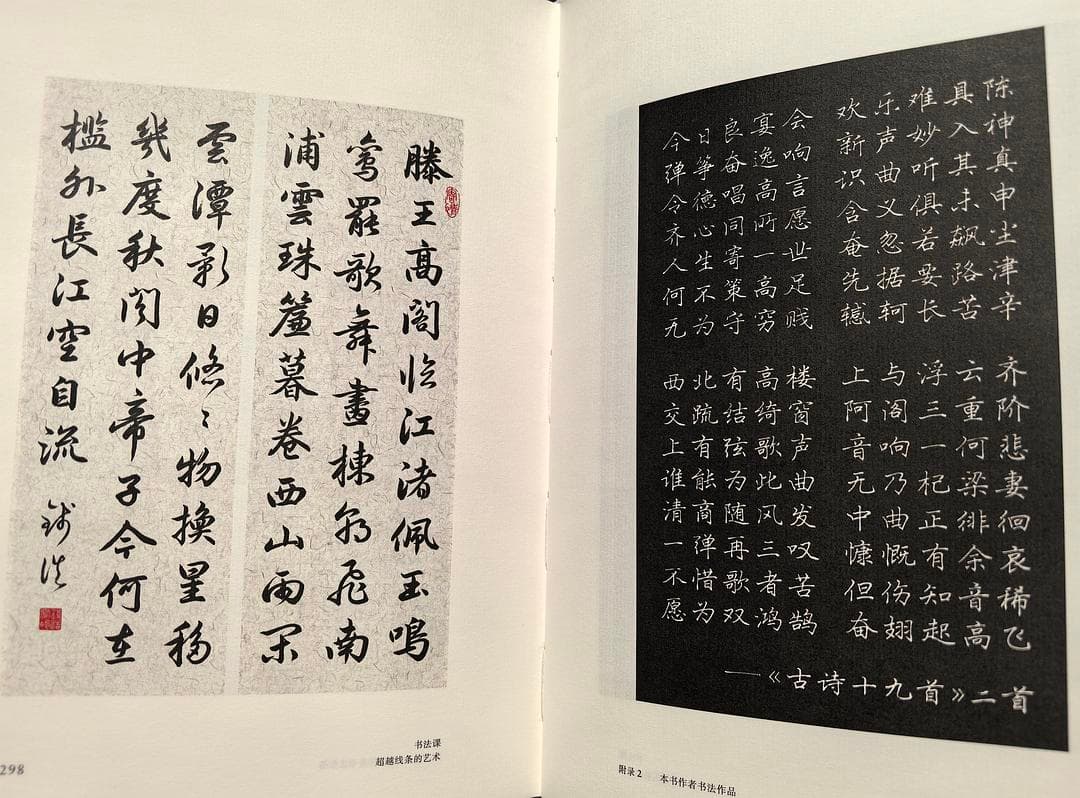 滕王高阁临江渚佩玉鳴
鸞罷歌舞畫棟朝飛南
浦雲珠簾暮卷西山雨闲
雲潭影日悠々物換星移
幾度秋阁中帝子今何在
檻外長江空自流
书法课
超越线条的艺术
298
今日良宴会 欢乐难具陈
弹筝奋逸响 新声妙入神
令德唱高言 识曲听其真
齐心同所愿 含义俱未申
人生寄一世 奄忽若飙尘
何不策高足 先据要路津
无为守穷贱 轗轲长苦辛
西北有高楼 上与浮云齐
交疏结绮窗 阿阁三重阶
上有弦歌声 音响一何悲
谁能为此曲 无乃杞梁妻
清商随风发 中曲正徘徊
一弹再三叹 慷慨有余哀
不惜歌者苦 但伤知音稀
愿为双鸿鹄 奋翅起高飞
——《古诗十九首》二首
附录2 本书作者书法作品